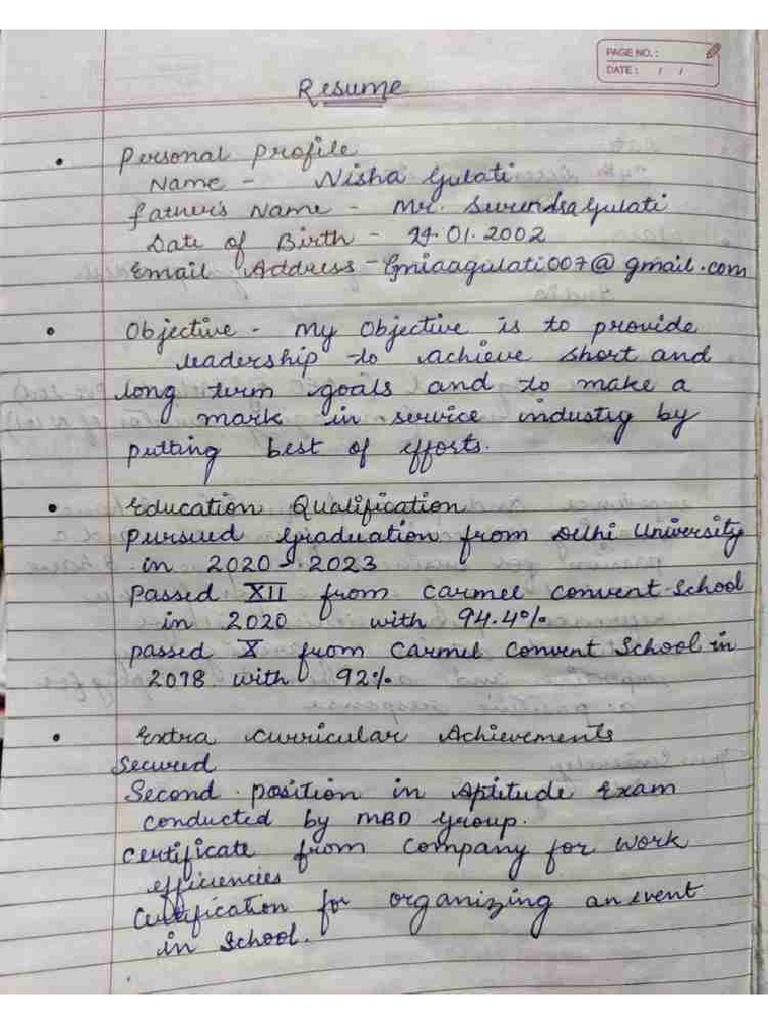 PAGE NO.:
DATE: / /
Resume
• Personal Profile
Name - Nisha Gulati
father's Name - Mr. Surendra Gulati
Date of Birth - 24.01.2002
Email Address - Gniaagulati007@gmail.com
• Objective - My Objective is to provide
leadership to achieve short and
long term goals and to make a
mark in service industry by
putting best of efforts.
• Education Qualification
Pursued graduation from Delhi University
in 2020 - 2023
Passed XII from Carmel Convent School
in 2020 with 94.4%
passed X from Carmel Convent School in
2018 with 92%
• Extra Curricular Achievements
Secured
Second position in Aptitude Exam
conducted by MBD Group.
Certificate from Company for work
efficiencies
Certification for organizing an event
in School.